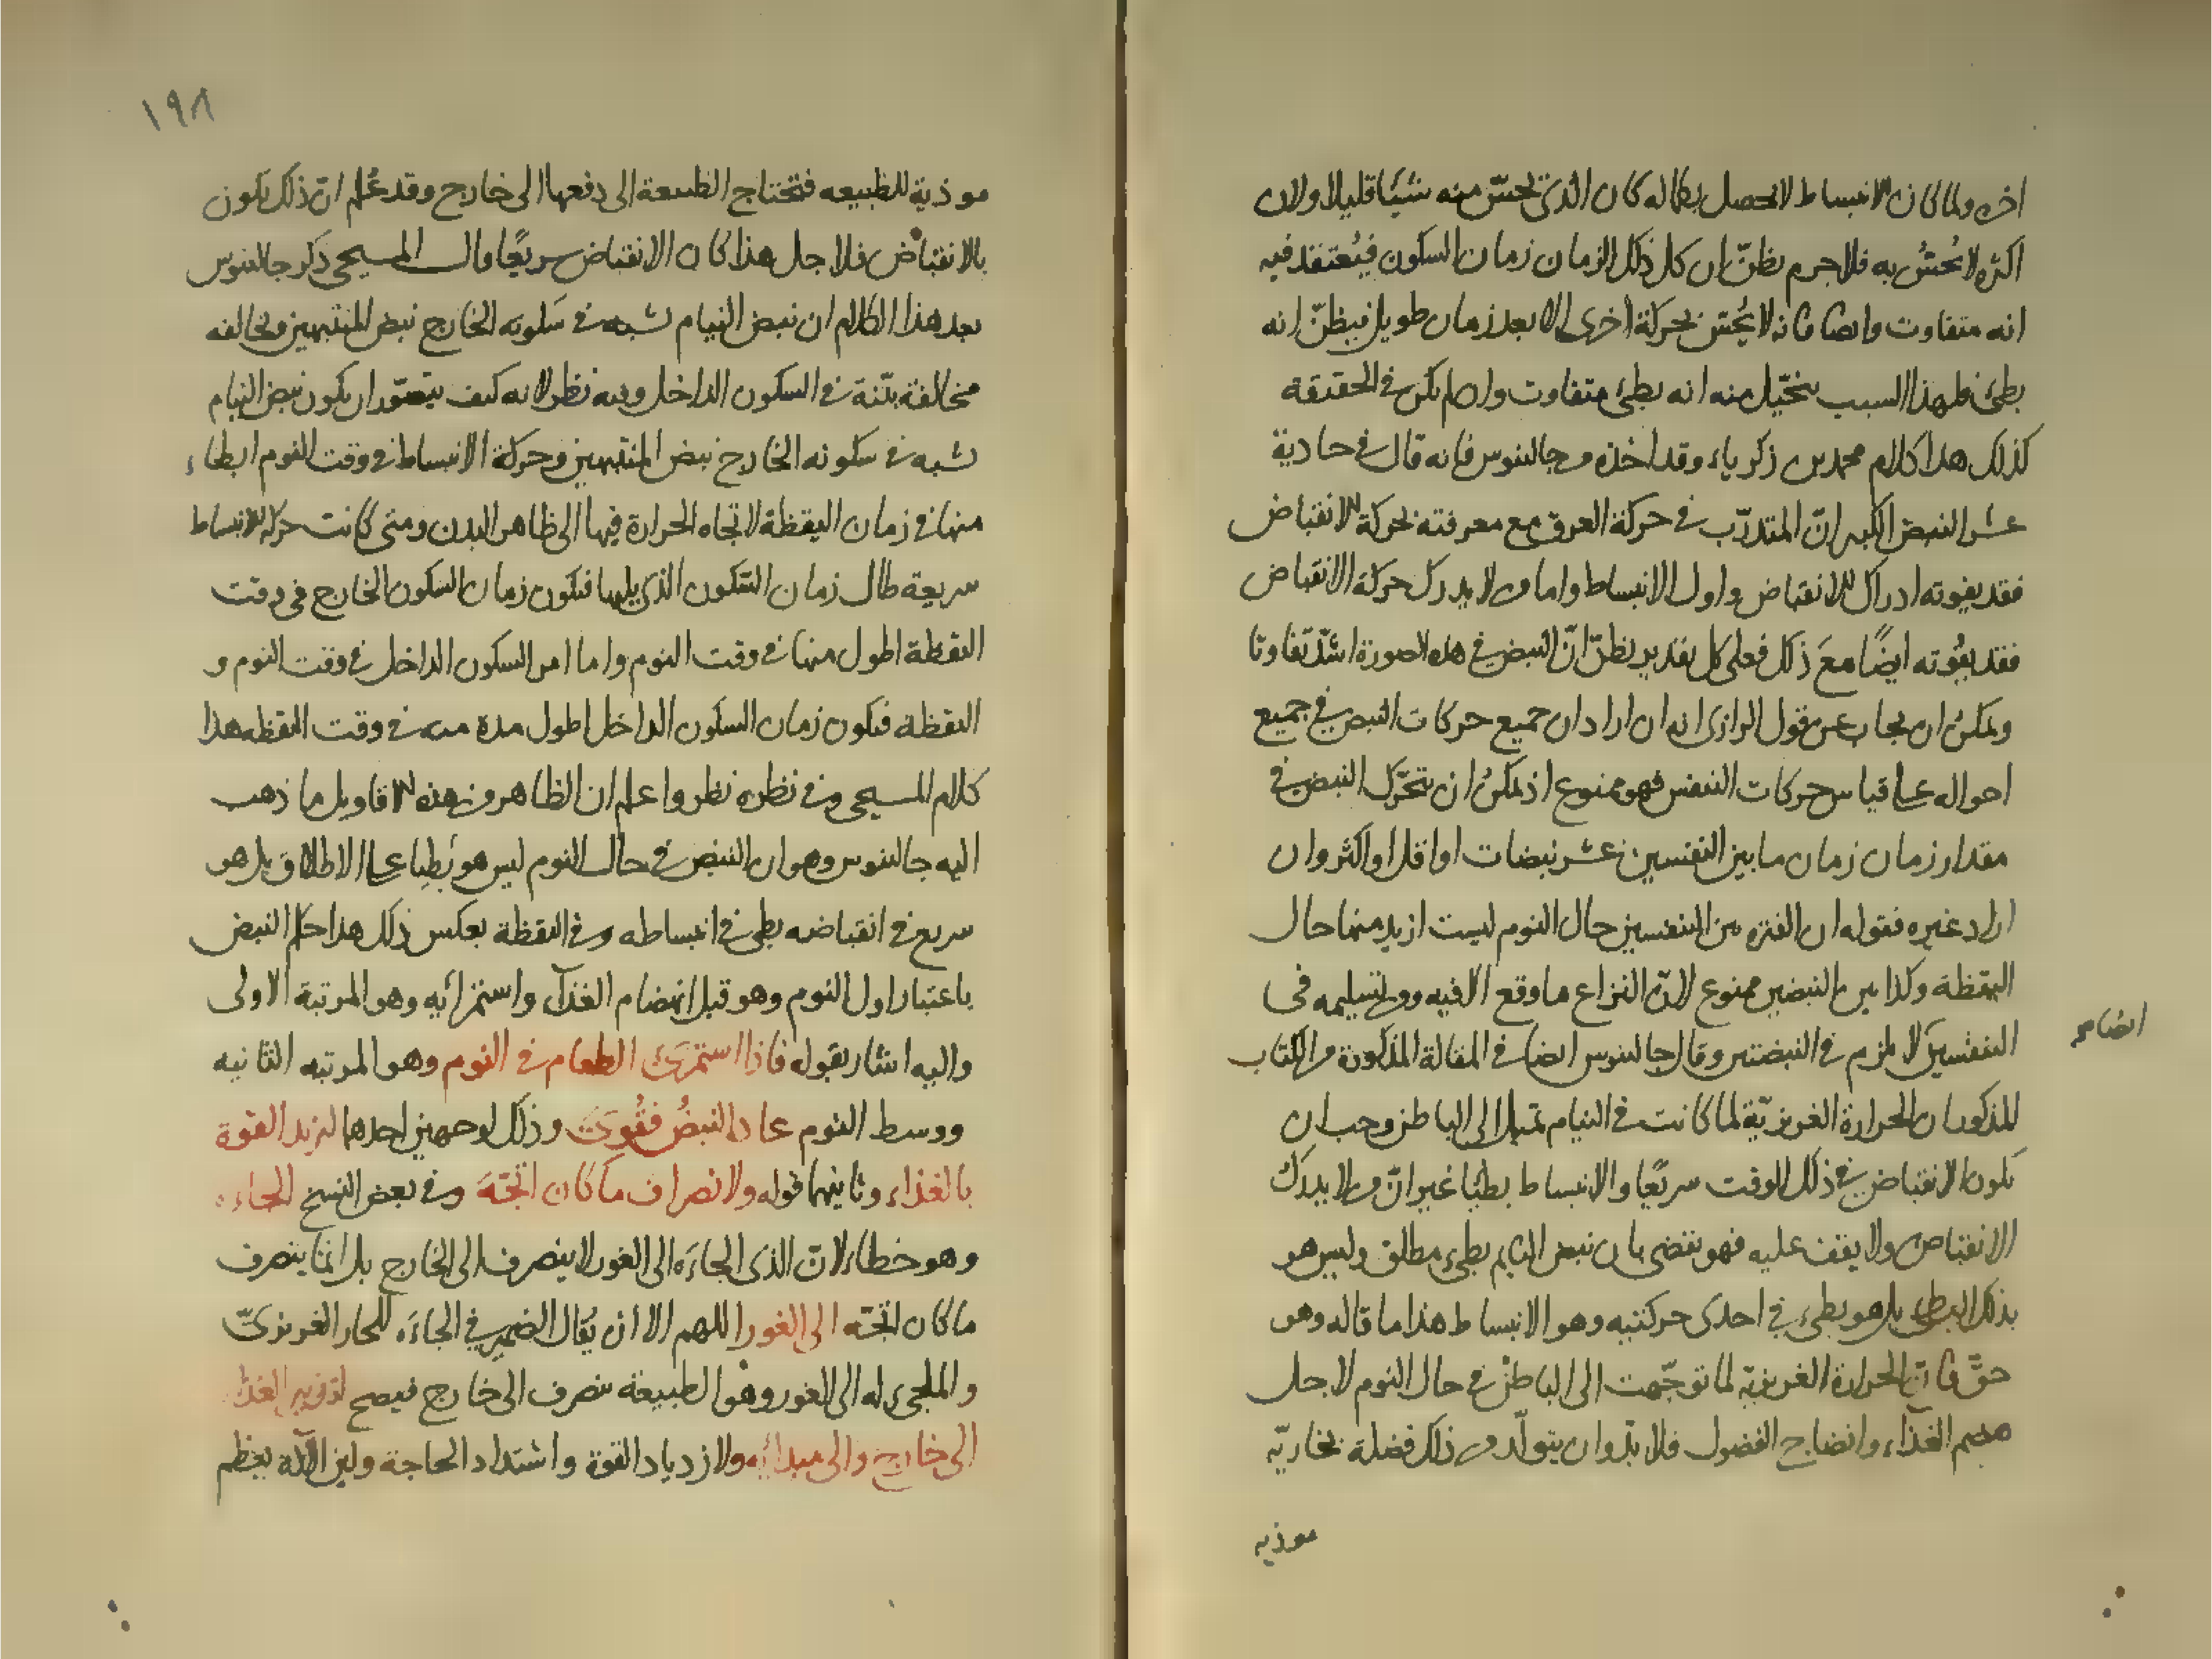 اخره ولما كان الانبساط لا يحصل بكماله كان الذى يحسّ منه شيئا قليلا ولان
اكثره لا يُحسُّ به فلا جرم يظنّ ان كل ذلك الزمان زمان السكون فيُعتقد فيه
انه متفاوت وايضا فانه لا يُحسّ بحركة اخرى الا بعد زمان طويل فيظنّ انه
بطئ فلهذا السبب يتخيّل منه انه بطئ متفاوت وان لم يكن فى الحقيقة
كذلك هذا كلام محمد بن زكرياء وقد اخذه من جالينوس فانه قال فى حادية
عشر النبض الكبير انّ المتدرّب فى حركة العرق مع معرفته بحركة الانقباض
فقد يفوته ادراك الانقباض واول الانبساط واما من لا يدرك حركة الانقباض
فقد يفُوته ايضًا معَ ذلك فعلى كل تقدير يظنّ انّ النبض فى هذه الصورة اشدّ تفاوتا
ويمكنُ ان يجاب عن قول الرازى انه ان اراد ان جميع حركات النبض فى جميع
احواله على قياس حركات التنفس فهو ممنوع اذ يمكنُ ان تتحرّك النبض فى
مقدار زمان زمان ما بين النفسين عشر نبضات او اقل او اكثر وان
اراد غيره فقوله ان الفترة بين النفسين حال النوم ليست ازيد منها حال
اليقظة وكذا بين النبضين ممنوع لانّ النزاع ما وقع الا فيه ومن تسليمه فى
التنفسينَ لا يلزم فى النبضتين وقال جالينوس ايضا فى المقالة المذكورة من الكتاب
المذكور ان الحرارة الغريزيّة لما كانت فى النيام تميل الى الباطن وجب ان
يكون الانقباض فى ذلك الوقت سريعًا والانبساط بطيئا غير انّ من لا يدرك
الانقباض ولا يقف عليه فهو يقضى بان نبض النايم بطئ مطلق وليس هو
بذلك البطئ بل هو بطئ فى احدى حركتيه وهو الانبساط هذا ما قاله وهو
حقّ فانّ الحرارة الغريزيّة لما توجّهت الى الباطن فى حال النوم لاجل
هضم الغذاء وانضاج الفضول فلا بدّ وان يتولّد من ذلك فضلة بخاريّة
موذيه
١٩٨
موذية للطبيعه فتحتاج الطبيعة الى دفعها الى خارج وقد عُلم انّ ذلك يكون
بالانقباض فلاجل هذا كان الانقباض سريعًا وقال المسيحى ذكر جالينوس
بعد هذا الكلام ان نبض النيام شبيه فى سكونه الخارج نبض المنتبهين ومخالفه
مخالفة بيّنة فى السكون الداخل وفيه نظر لانه كيف يتصوّر ان يكون نبض النيام
شبيه فى سكونه الخارج نبض المنتبهين وحركة الانبساط فى وقت النوم ابطاء
منها فى زمان اليقظة لاتجاه الحرارة فيها الى ظاهر البدن ومتى كانت حركة الانبساط
سريعة طال زمان السّكون الذى يليها فيكون زمان السكون الخارج فى وقت
اليقظة اطول منها فى وقت النوم واما امر السكون الداخل فى وقت النوم و
اليقظة فيكون زمان السكون الداخل اطول مدة منه فى وقت اليقظه هذا
كلام المسيحى وفى نظره نظر واعلم ان الظاهر من هذه الاقاويل ما ذهب
اليه جالينوس وهو ان النبض فى حال النوم ليس هو بطيا على الاطلاق بل هو
سريع فى انقباضه بطئ فى انبساطه وفى اليقظة بعكس ذلك هذا حكم النبض
باعتبار اول النوم وهو قبل انهضام الغذآء واستمرائيه وهو المرتبة الاولى
واليه اشار بقوله فاذا استمرئَ الطعام فى النوم وهو المرتبه الثانيه
ووسط النوم عاد النبضُ فقُوىَ وذلك لوجهين احدهما لتزيد القوة
بالغذاء وثانيهما قوله ولانصراف ما كان اتّجهَ وفى بعض النسخ الجاءه
وهو خطاء لانّ الذى الجاءَه الى الغور لا ينصرف الى الخارج بل انّما ينصرف
ما كان اتّجه الى الغور اللهم الا أن يُقال الضمير فى الجاءَه للحار الغريزىّ
والملجئ له الى الغور وهو الطبيعة ينصرف الى خارج فيصح لتدبير الغذاء
الى خارج والى مبدائه ولازدياد القوة واشتداد الحاجة ولين الآلة يعظم